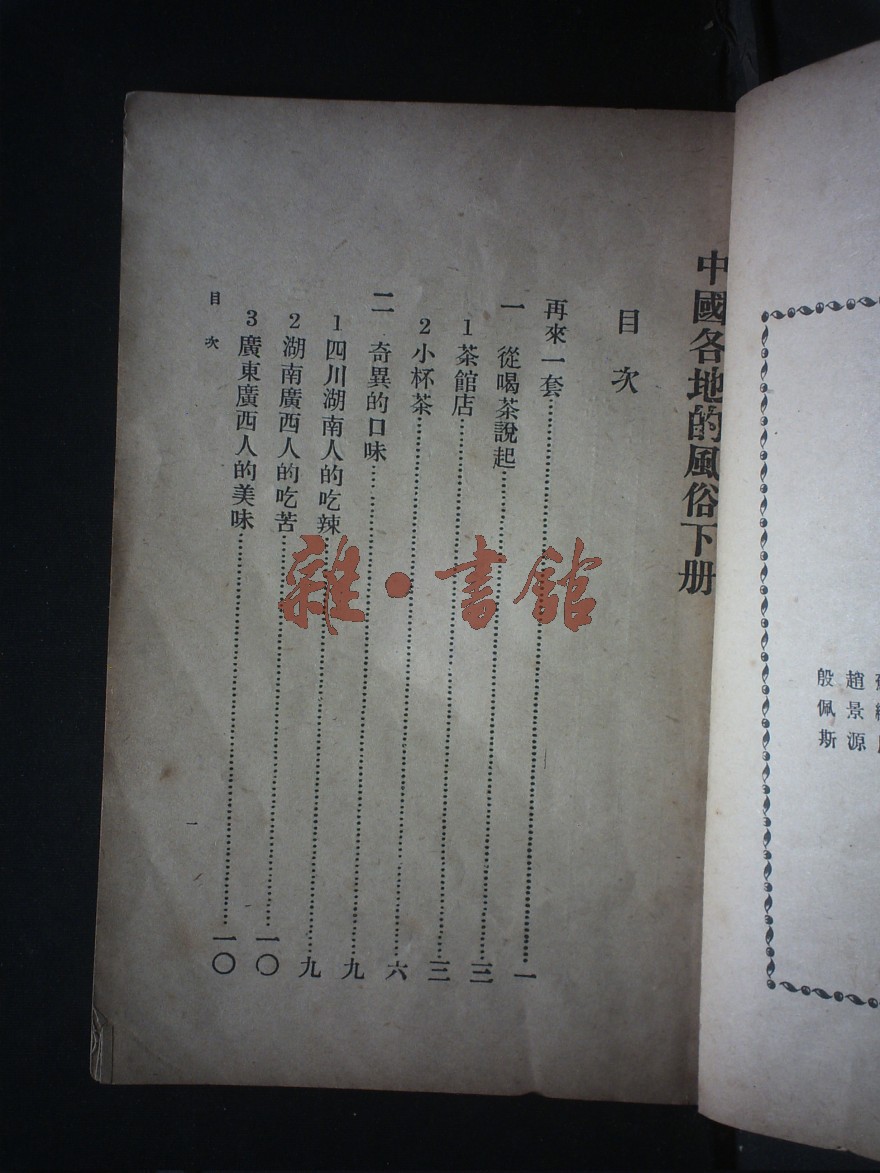 趙景源
殷佩斯
中國各地的風俗下册
目次
再來一套……一
一 從喝茶說起……三
1 茶館店……三
2 小杯茶……六
二 奇異的口味……九
1 四川湖南人的吃辣……九
2 湖南廣西人的吃苦……一〇
3 廣東廣西人的美味……一〇
目次
一
雜·書館